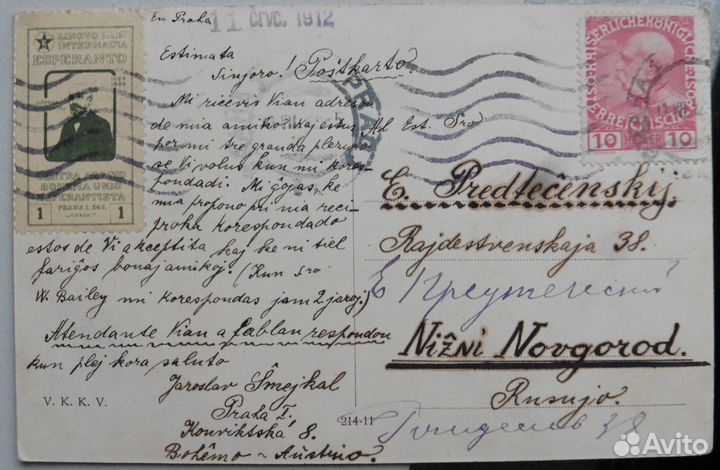 En Praha
11 črvc. 1912
LINGVO
INTERNACIA
ESPERANTO
BOHEMA UNIO
ESPERANTISTA
PRAHA I. 245.
1 1
Estimata
Sinjoro! Poŝtkarto.
Mi ricevis Vian adreson
de mia amiko kaj estus
per mi tre granda plezuro
se Vi volus kun mi kores-
pondadi. Mi ĝojas, ke
mia propono pri nia reci-
proka korespondado
estos de Vi akceptita kaj ke ni tiel
fariĝos bonaj amikoj. (Kun Sro
W. Bailey mi korespondas jam 2 jaroj.)
Atendante Vian afablan respondon
kun plej kora saluto
Jaroslav Šmejkal
Praha I.
Konviktská 8.
Bohêmo - Austrio.
V. K. K. V.
214-11
10 10
Al Est. Sro
E. Predtečenskij
Rajdestvenskaja 38.
Е
Niĵni Novgorod.
Rusujo.
38
Avito